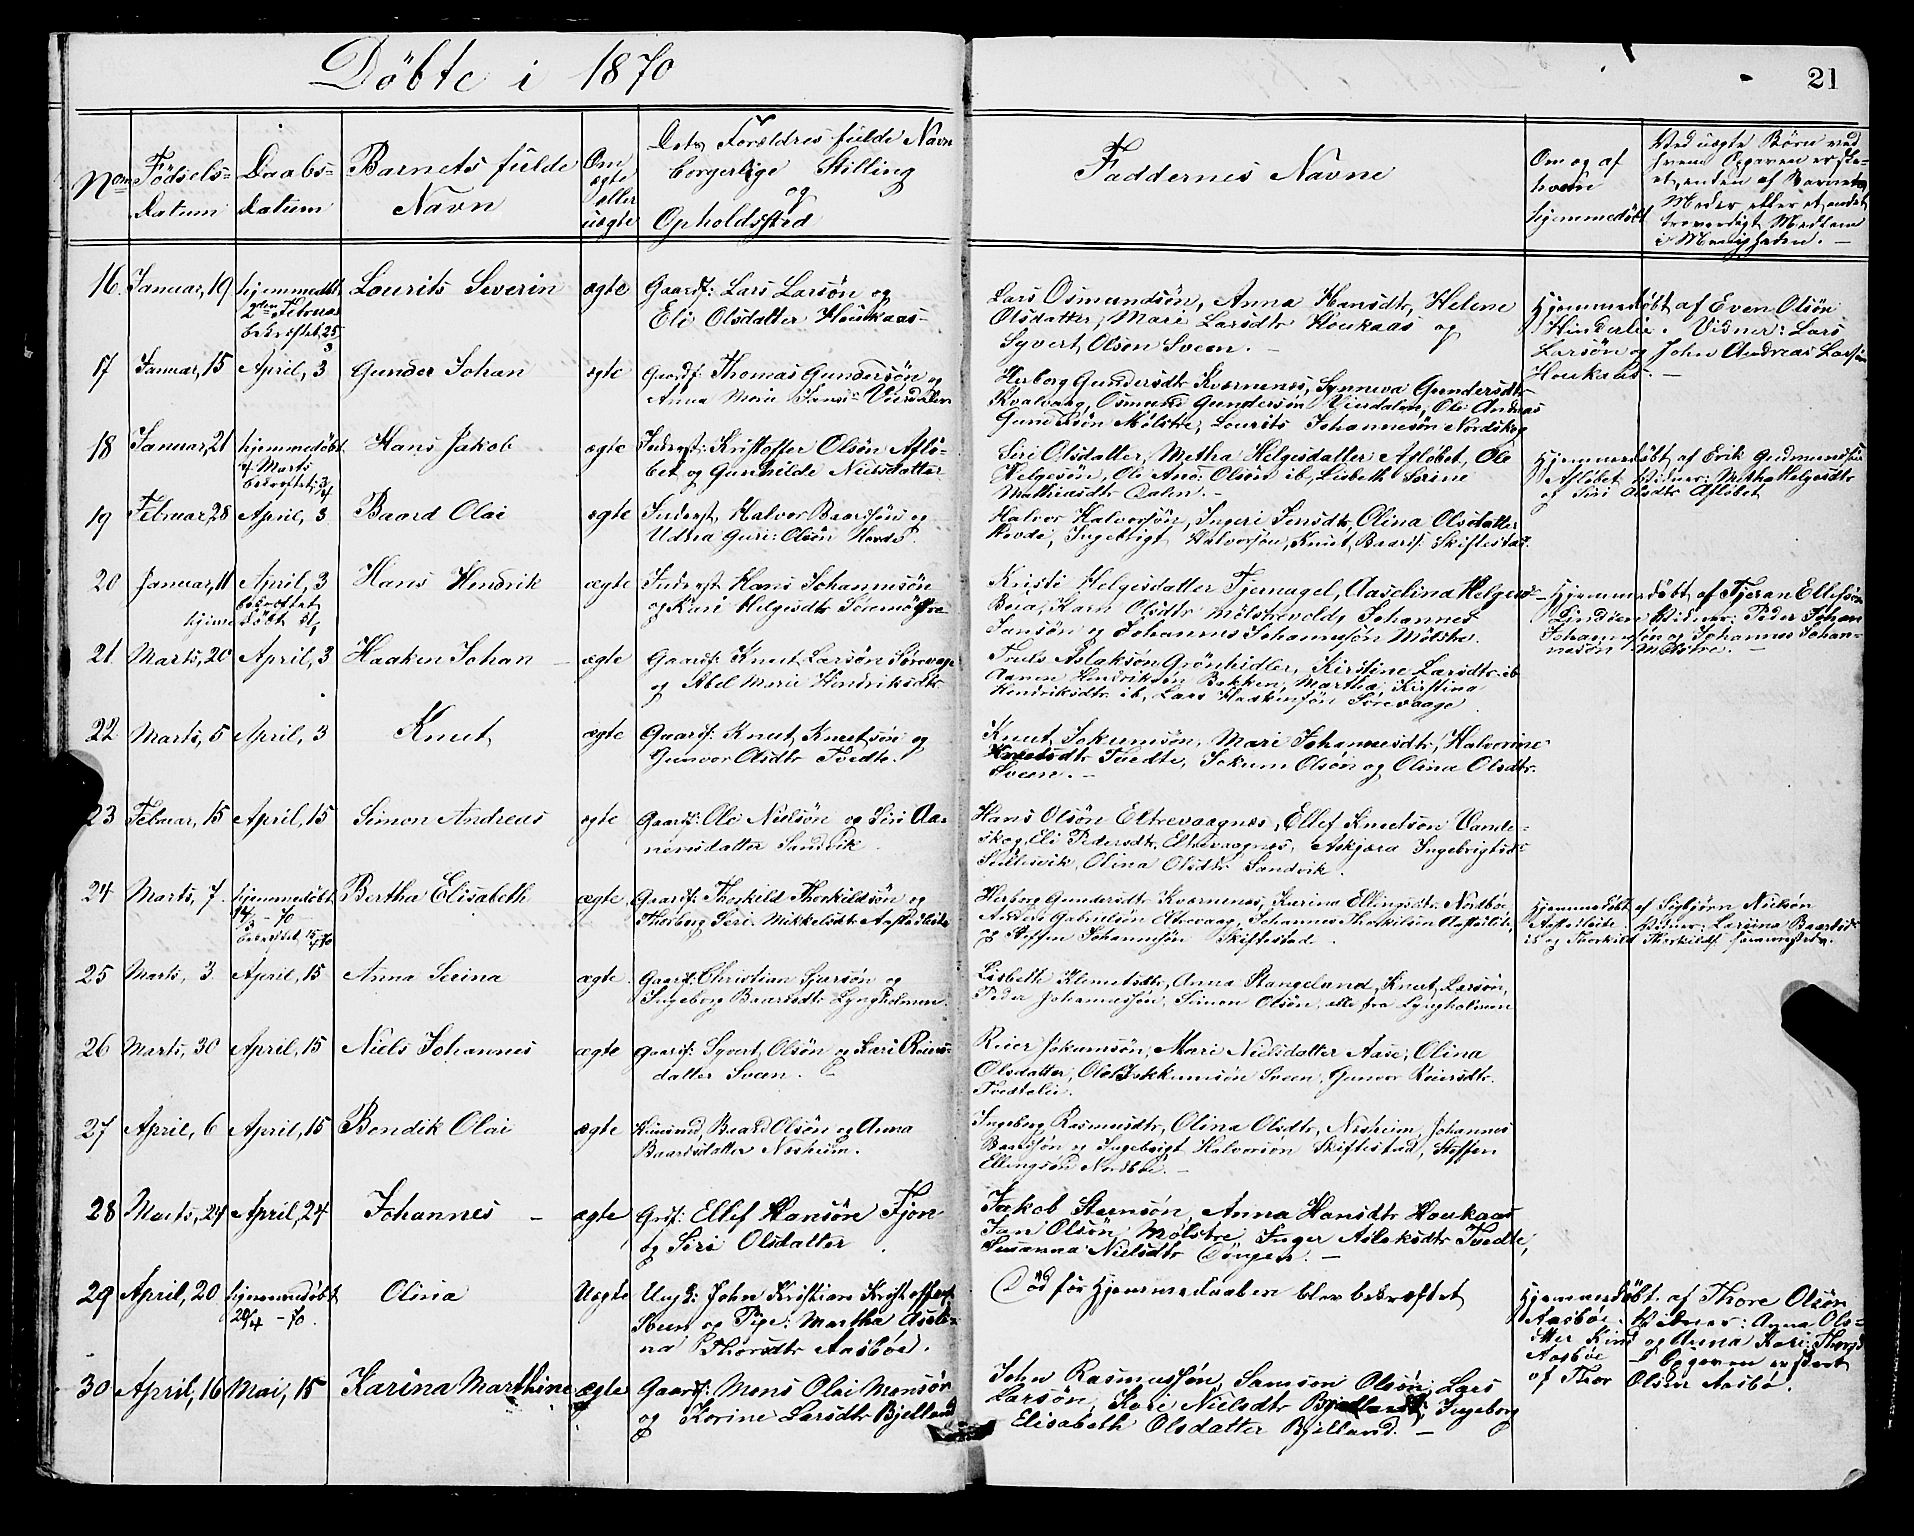 Döbte i 1870
21
Nom
Födsels-
Datum
Daabs-
Datum
Barnets fulde
Navn
Om
ægte
eller
uægte
Dets Forældres fulde Navn
borgerlige Stilling
og
Opholdssted
Faddernes Navne
Om og af
hvem
hjemmedöbt
Ved uægte Börn ved
hvem Opgaven er ske-
et, enten af Barnets
Moder eller et andet
troværdigt Medlem
i Menigheden. —
16. Januar, 19 hjemmedöbt Lourits Severin ægte Gaardf: Lars Larsön og
2den Februar Eli Olsdatter Houkaas-
bekræftet 25/3
Lars Osmundsön, Anna Hansdtr, Helene
Olsdatter, Mari Larsdtr Houkaas og
Syvert Olsen Sveen. —
Hjemmedöbt af Even Olsön
Hinderlie. Vidner: Lars
Larsön og John Andreas Larsön
Houkaas. —
17 Januar, 15 April, 3 Gunder Johan ægte Gaardf: Thomas Gundersön og
Anna Marie Jansd: Viesdalen
Herborg Gundersdtr Kværnenes, Synneva Gundersdtr
Kvalvaag, Osmund Gundersön Viesdalen, Ole Andreas
Gundersön Mölstre, Lourits Johannesön Nordskog
18 Januar, 21 hjemmedöbt Hans Jakob ægte Inderst: Kristoffer Olsön Aflö-
4 Marts bet og Gunhilde Nielsdatter
bekræftet 3/4
Siri Olsdatter, Metha Helgesdatter Aflöbet, Ole
Helgesön, Ole And: Olsön ib, Lisbeth Serine
Mathiasdtr Dalen. —
Hjemmedöbt af Erik Gudmundsön
Aflöbet. Vidner: Metha Helgesdtr
og Siri Olsdtr Aflöbet
19 Februar, 28 April, 3 Baard Olai ægte Inderst Halvor Baardsön og
Udna Guri: Olsön Hovde
Halvor Halvorsön, Ingeri Jensdtr, Olina Olsdatter
Hovde, Ingebrigt Halvorsön, Knut Baards: Skiftestad.
20 Januar, 11 April, 3 Hans Hendrik ægte Inderst Hans Johannesön
bekræftet og Kari Helgesdtr
hjemmedöbt
Kristi Helgesdatter Tjernagel, Aaselina Helgesd-
Karn Olsdtr Mölstrevold, Johannes
Jansön og Johannes Johannesön Mölstre.
Hjemmedöbt af Tjeran Ellefsön
Lindöen. Vidner: Peder Johan
Johannesön og Johannes Johan-
nesön Mölstre. —
21. Marts, 20 April, 3 Haaken Johan ægte Gaardf: Knut Larsön Sörevage
og Abel Marie Hendriksdtr
Truls Aslaksön Grönhidler, Kirstine Larsdtr ib
Aanen Hendriksön Bakken, Martha Kirstina
Hendriksdtr ib, Lars Haakensön Sörevaage
22 Marts, 5 April, 3 Knut ægte Gaardf: Knut Knutsön og
Gunvor Olsdtr Tvedte.
Knut Jokumsön, Mari Johannesdtr, Halvorine
Knutsdtr Tvedte, Jokum Olsön og Olina Olsdtr
Sveen. —
23 Februar, 15 April, 15 Simon Andreas ægte Gaardf: Ole Nielsön og Siri Aa-
nensdatter Sandvik.
Hans Olsön Eltrevaagnes, Ellef Knutsön Vande-
skog, Eli Pedersdtr Eltrevaagnes, Askjæra Ingebrigtsd:
Olina Olsdtr Sandvik.
24 Marts, 7 hjemmedöbt Bertha Elisabeth ægte Gaardf: Thorkild Thorkildsön og
14/3 - 70 Seri Mikkelsdtr Aastadleite
bekræftet 15/4 70
Herborg Gundersdtr Kværnenes, Karina Ellingsdtr Nordbö
Anders Gabrielsön Eltrevaag, Johannes Thorkilsön Aastadleite
og Steffen Johannesön Skiftestad.
Hjemmedöbt af Sigbjörn Nielsön
Aastadleite. Vidner: Larsina Baardsd:
ib og Thorkild Thorkilds:
25 Marts, 3 April, 15 Anna Serina ægte Gaardf: Christian Sjursön og
Ingeborg Baardsdtr Lyngholmen
Lisbeth Klemetsdtr, Anna Stangeland, Knut Larsön,
Peder Johannesön, Simon Olsön, alle fra Lyngholmen
26 Marts, 30 April, 15 Niels Johannes ægte Gaardf: Syvert Olsön og Kari Reiers-
datter Sveen.
Reier Jokumsön, Mari Nielsdatter Aase, Olina
Olsdatter, Ole Jokkumsön Sveen, Gunvor Reiersdtr
Tvedtelie.
27 April, 6 April, 15 Bendik Olai ægte Huusmd Baard Olsön og Anna
Baardsdatter Næsheim.
Ingeborg Rasmusdtr, Olina Olsdtr, Nesheim, Johannes
Baardsön og Ingebrigt Halvorsön Skiftestad, Steffen
Ellingsön Nordböe. —
28 Marts, 24 April, 24 Johannes — ægte Grdf: Ellef Hansöre Fjon
og Siri Olsdatter.
Jakob Steensön, Anna Hansdtr Houkaas
Jan Olsön Mölstre, Inger Aslaksdtr Tvedte,
Susanna Nielsdtr Döngen. —
29 April, 20 hjemmedöbt Olina Uægte Ungk: John Kristian Kristoffers:
20/4 - 70. og Pige: Martha Aseli-
na Thorsdtr Aasböe.
Död för Hjemmedaaben blev bekræftet
Hjemmedöbt af Thore Olsön
Aasböe. Vidner: Anna Ols-
og Anna Kari: Thorsd
Aasböe — Opgaven er skeet
af Thor Olsön Aasbö.
30 April, 16 Mai, 15 Karina Marthine ægte Gaardf: Mons Olai Monsön
og Korine Larsdtr Bjelland
John Rasmussön, Samson Olsön, Lars
Larsön, Kari Nielsdtr Bjelland, Ingeborg
Elisabeth Olsdatter Bjelland. —